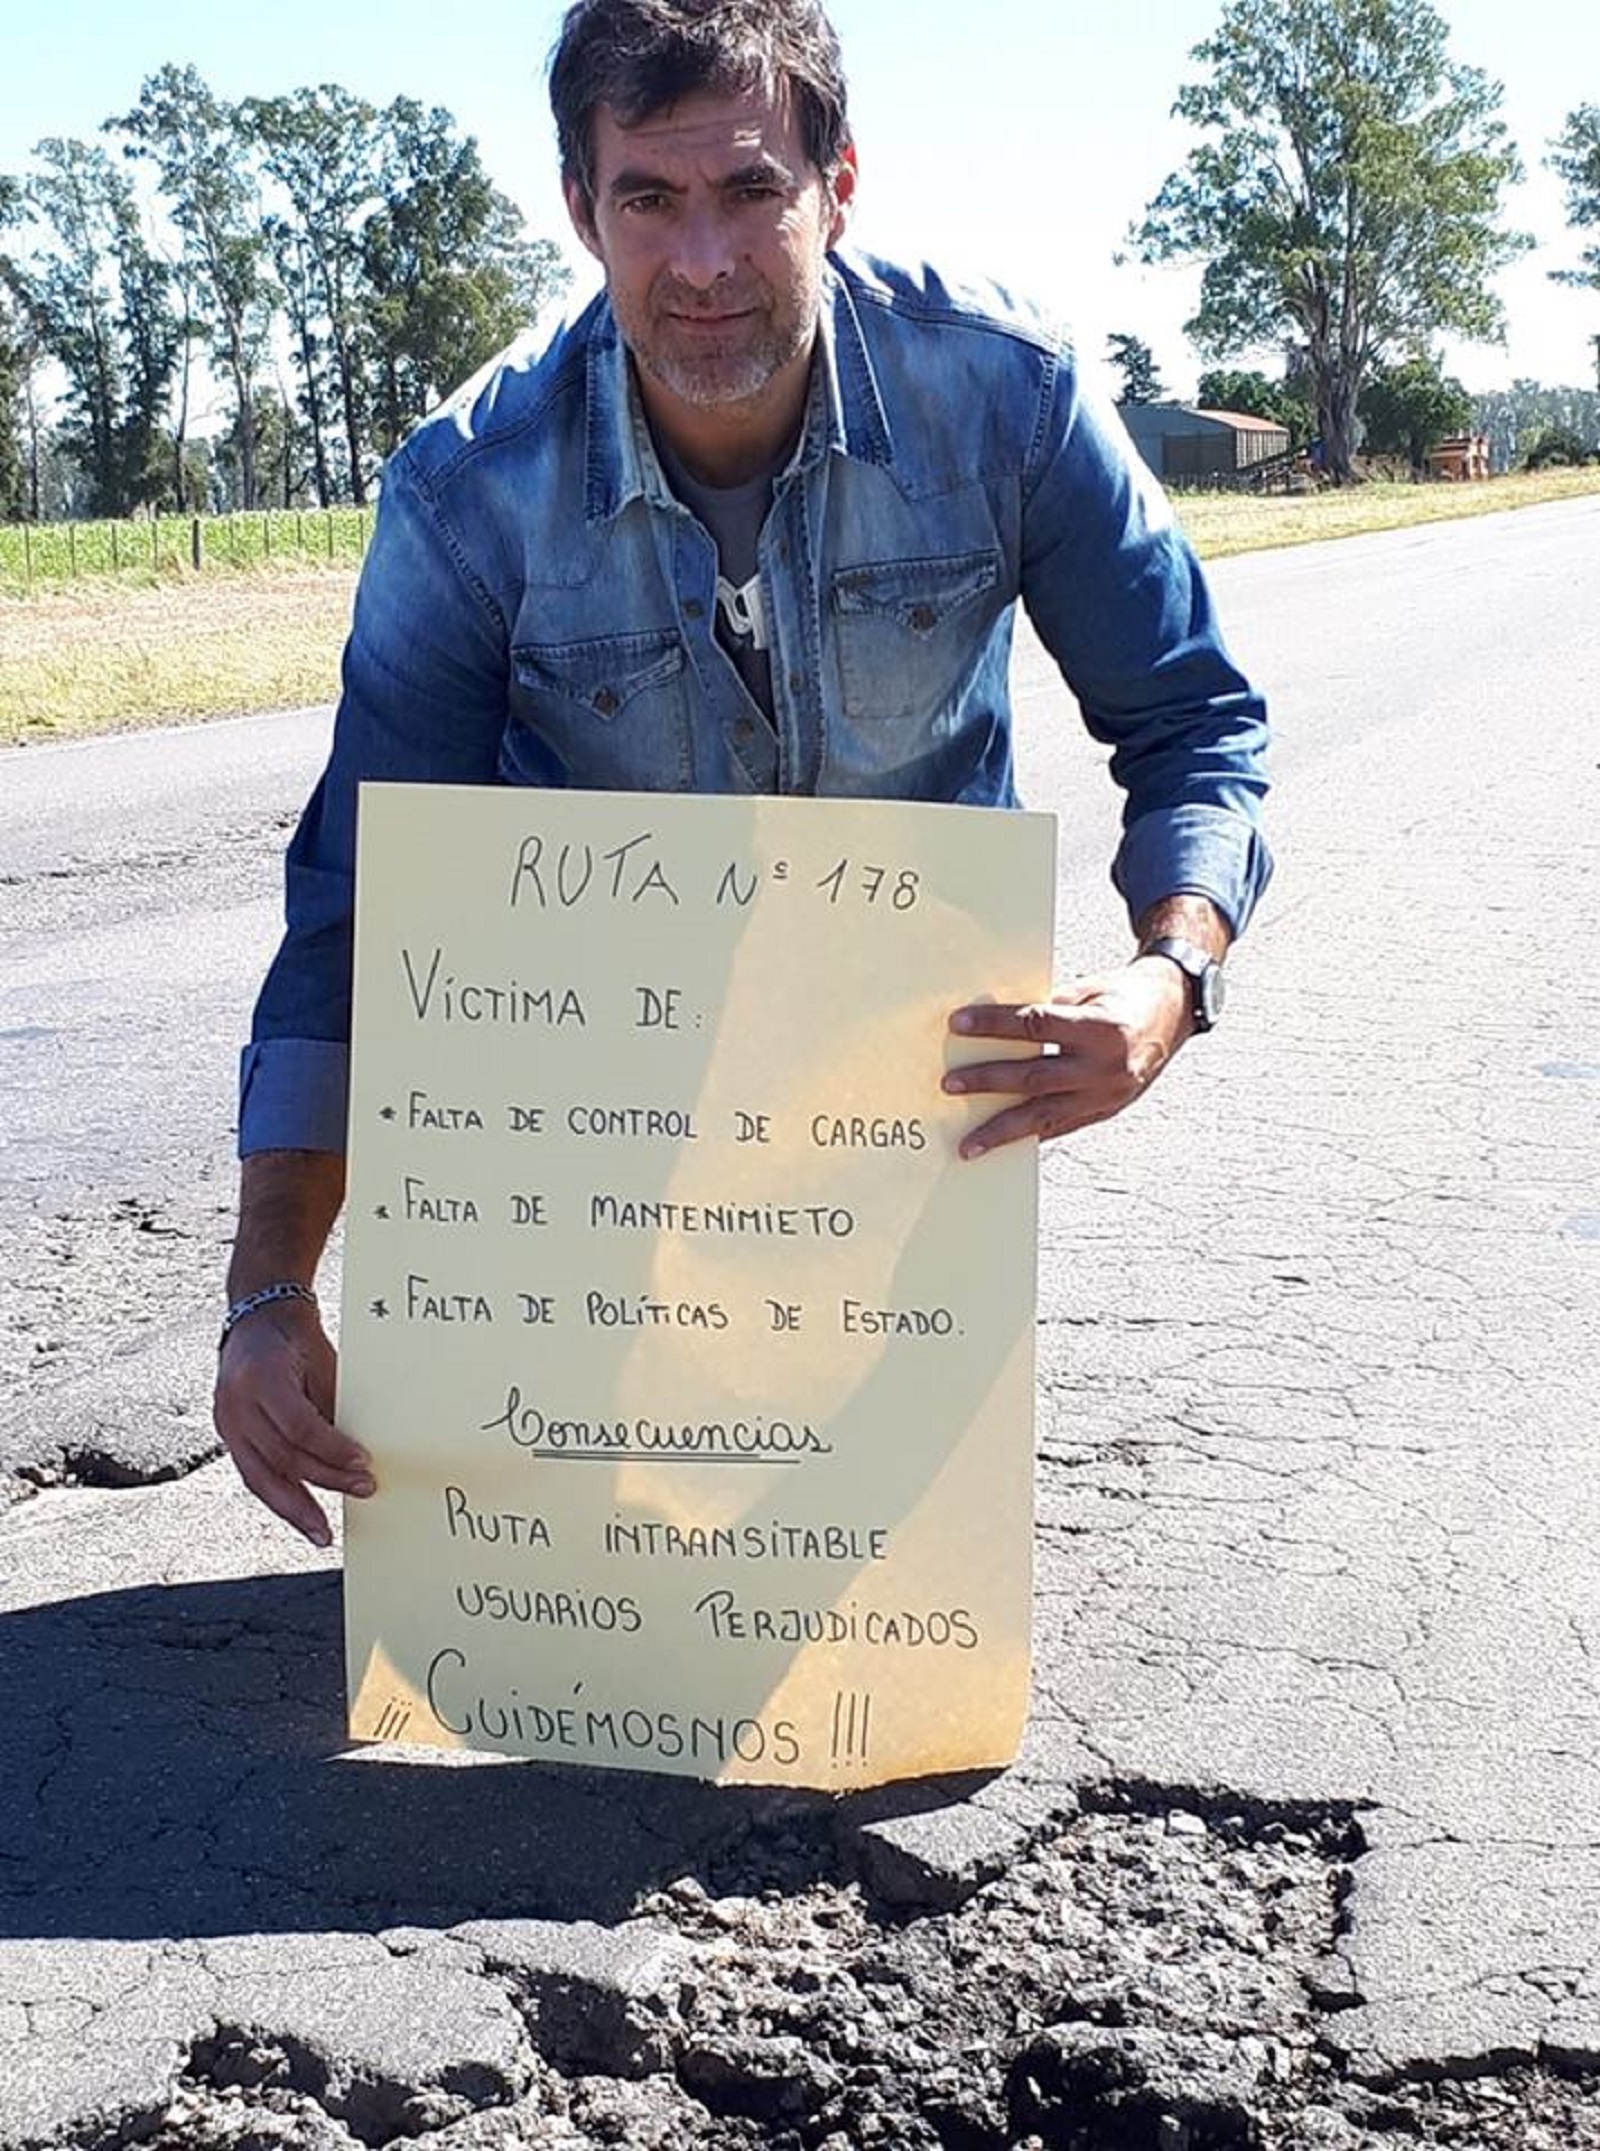 RUTA Nº 178
VÍCTIMA DE:
* FALTA DE CONTROL DE CARGAS
* FALTA DE MANTENIMIETO
* FALTA DE POLÍTICAS DE ESTADO.
Consecuencias
RUTA INTRANSITABLE
USUARIOS PERJUDICADOS
¡¡¡ CUIDÉMOSNOS !!!